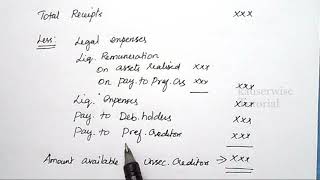 Total Receipts xxx
Less: Legal expenses
Liq. Remuneration
on assets realised xxx
on pay. to Pref. Crs xxx xxx
Liq. Expenses xxx
Pay. to Deb. holders xxx
Pay. to Pref. Creditor xxx
Amount available Unsec. Creditor → xxx
kauserwise
tutorial